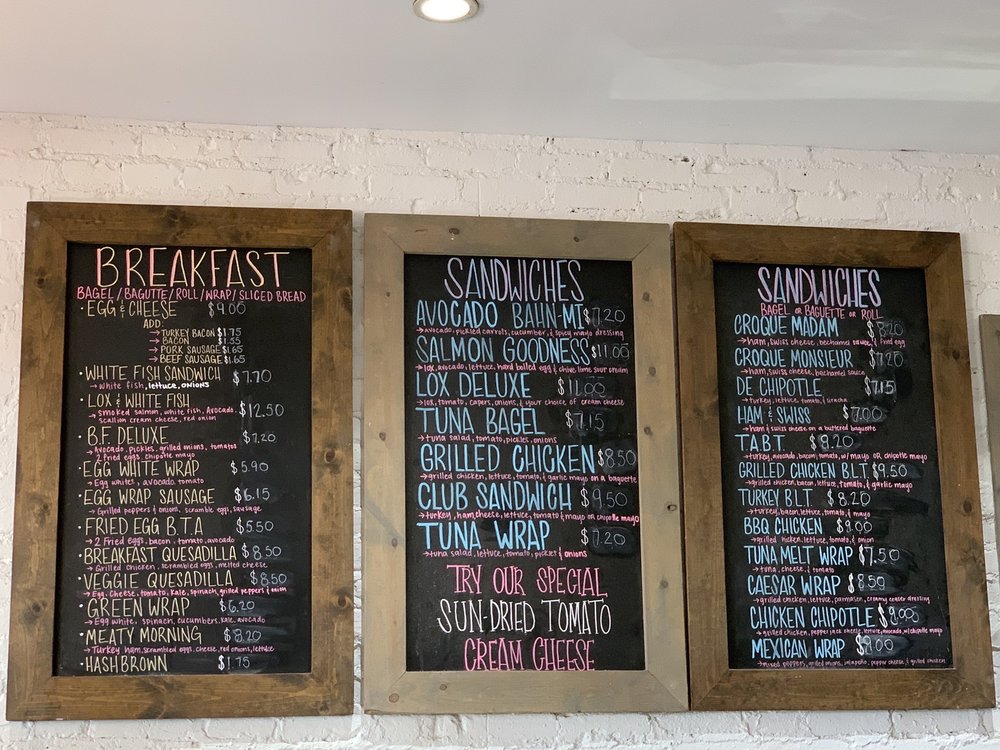 BREAKFAST
BAGEL/BAGUTTE/ROLL/WRAP/SLICED BREAD
· EGG & CHEESE $9.00
ADD:
→ TURKEY BACON $1.75
→ BACON $1.55
→ PORK SAUSAGE $1.65
→ BEEF SAUSAGE $1.65
· WHITE FISH SANDWICH $7.70
→ White fish, lettuce, onions
· LOX & WHITE FISH $12.50
→ smoked salmon, white fish, Avocado,
scallion cream cheese, red onion
· B.F. DELUXE $7.20
→ Avocado, pickles, grilled onions, tomatoes
2 fried eggs, chipotle mayo
· EGG WHITE WRAP $5.90
→ Egg whites, avocado, tomato
· EGG WRAP SAUSAGE $6.15
→ Grilled peppers & onions, scramble eggs, sausage
· FRIED EGG B.T.A $5.50
→ 2 Fried eggs, bacon, tomato, avocado
· BREAKFAST QUESADILLA $8.50
→ Grilled chicken, scrambled eggs, melted cheese
· VEGGIE QUESADILLA $8.50
→ Egg, Cheese, tomato, Kale, spinach, grilled peppers & onion
· GREEN WRAP $6.20
→ Egg white, spinach, cucumbers, kale, avocado
· MEATY MORNING $8.20
→ Turkey ham, scrambled eggs, cheese, red onions, lettuce
· HASHBROWN $1.75
SANDWICHES
AVOCADO BAHN-MI $7.20
→ avocado, pickled carrots, cucumber, & spicy mayo dressing
SALMON GOODNESS $11.00
→ lox, avocado, lettuce, hard boiled egg & chive lime sour cream
LOX DELUXE $11.00
→ lox, tomato, capers, onions, & your choice of cream cheese
TUNA BAGEL $7.15
→ tuna salad, tomato, pickles, onions
GRILLED CHICKEN $8.50
→ grilled chicken, lettuce, tomato, & garlic mayo on a baguette
CLUB SANDWICH $9.50
→ turkey, ham, cheese, lettuce, tomato & mayo or chipotle mayo
TUNA WRAP $7.20
→ tuna salad, lettuce, tomato, pickles & onions
TRY OUR SPECIAL
SUN-DRIED TOMATO
CREAM CHEESE
SANDWICHES
BAGEL OR BAGUETTE OR ROLL
CROQUE MADAM $8.20
→ ham, swiss cheese, bechamel sauce, & fried egg
CROQUE MONSIEUR $7.20
→ ham, swiss cheese, bechamel sauce
DE CHIPOTLE $7.15
→ turkey, lettuce, tomato, & siracha
HAM & SWISS $7.00
→ ham & swiss cheese on a buttered baguette
T.A.B.T. $8.20
→ turkey, avocado, bacon, tomato, w/ mayo OR chipotle mayo
GRILLED CHICKEN B.L.T. $9.50
→ grilled chicken, bacon, lettuce, tomato, & garlic mayo
TURKEY B.L.T $8.20
→ turkey, bacon, lettuce, tomato, & mayo
BBQ CHICKEN $9.00
→ grilled hicken, lettuce, tomato, & onion
TUNA MELT WRAP $7.50
→ tuna, cheese, & tomato
CAESAR WRAP $8.50
→ grilled chicken, lettuce, parmasen, creamy ceaser dressing
CHICKEN CHIPOTLE $9.00
→ grilled chicken, pepper jack cheese, lettuce, avocado, w/ chipotle mayo
MEXICAN WRAP $9.00
→ mixed peppers, grilled onions, jalapeño, pepper cheese, & grilled chicken